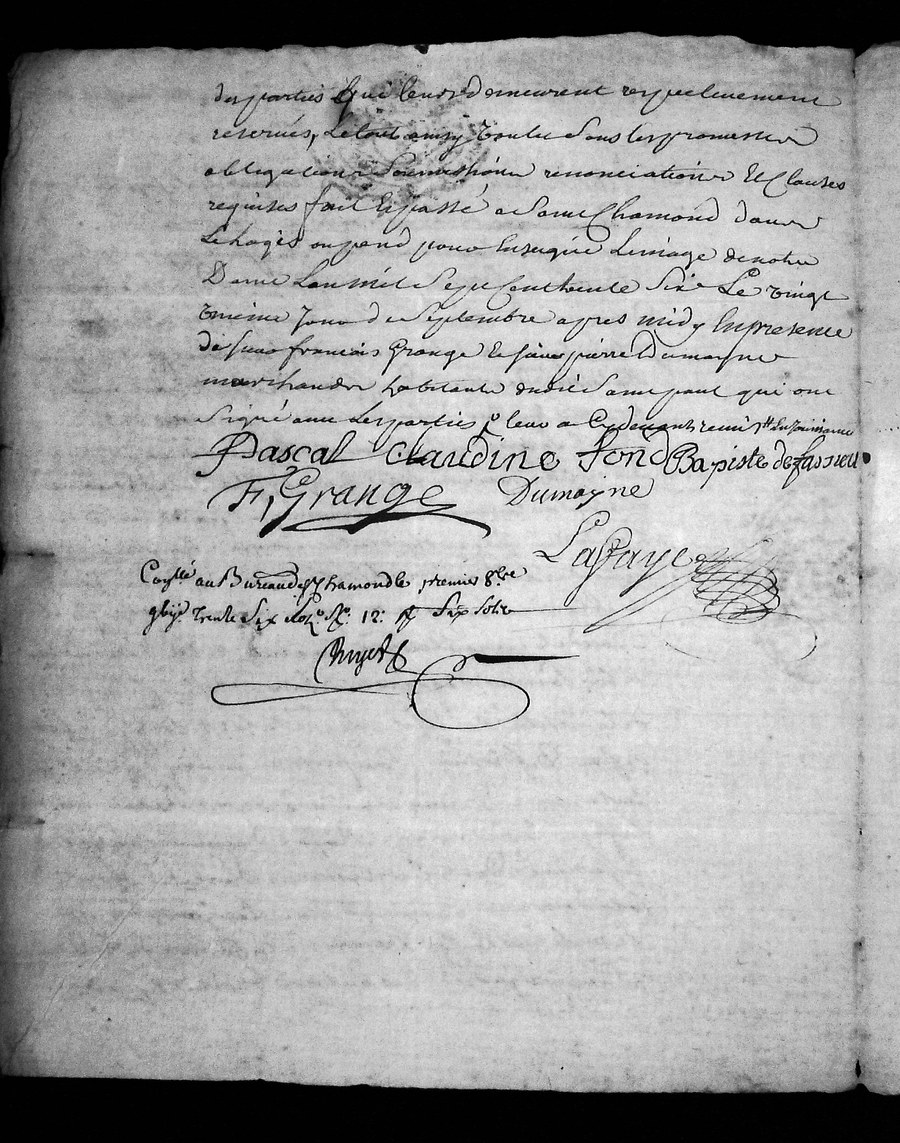 des parties qui leurs demeurent respectivement
reservés, Le tout ainsy voulu sous les promesses
obligations soumissions renonciations Et Clauses
requises fait Et passé a Saint Chamond dans
Le logis ou pend pour Enseigne Limage de notre
Dame Lan mil Sept Cent trente Six Le vingt
Jour de Septembre apres midy En presence
de sieur francois Grange Et sieur pierre Dumayne
marchands habitants dudit Saint paul qui ont
Signé avec Les parties
Pascal Claudine fond Bapiste de fassieu
F, Grange Dumayne
Lafaye
au Bureau de St Chamond le premier 8bre
trente Six fo. 12: Six sols